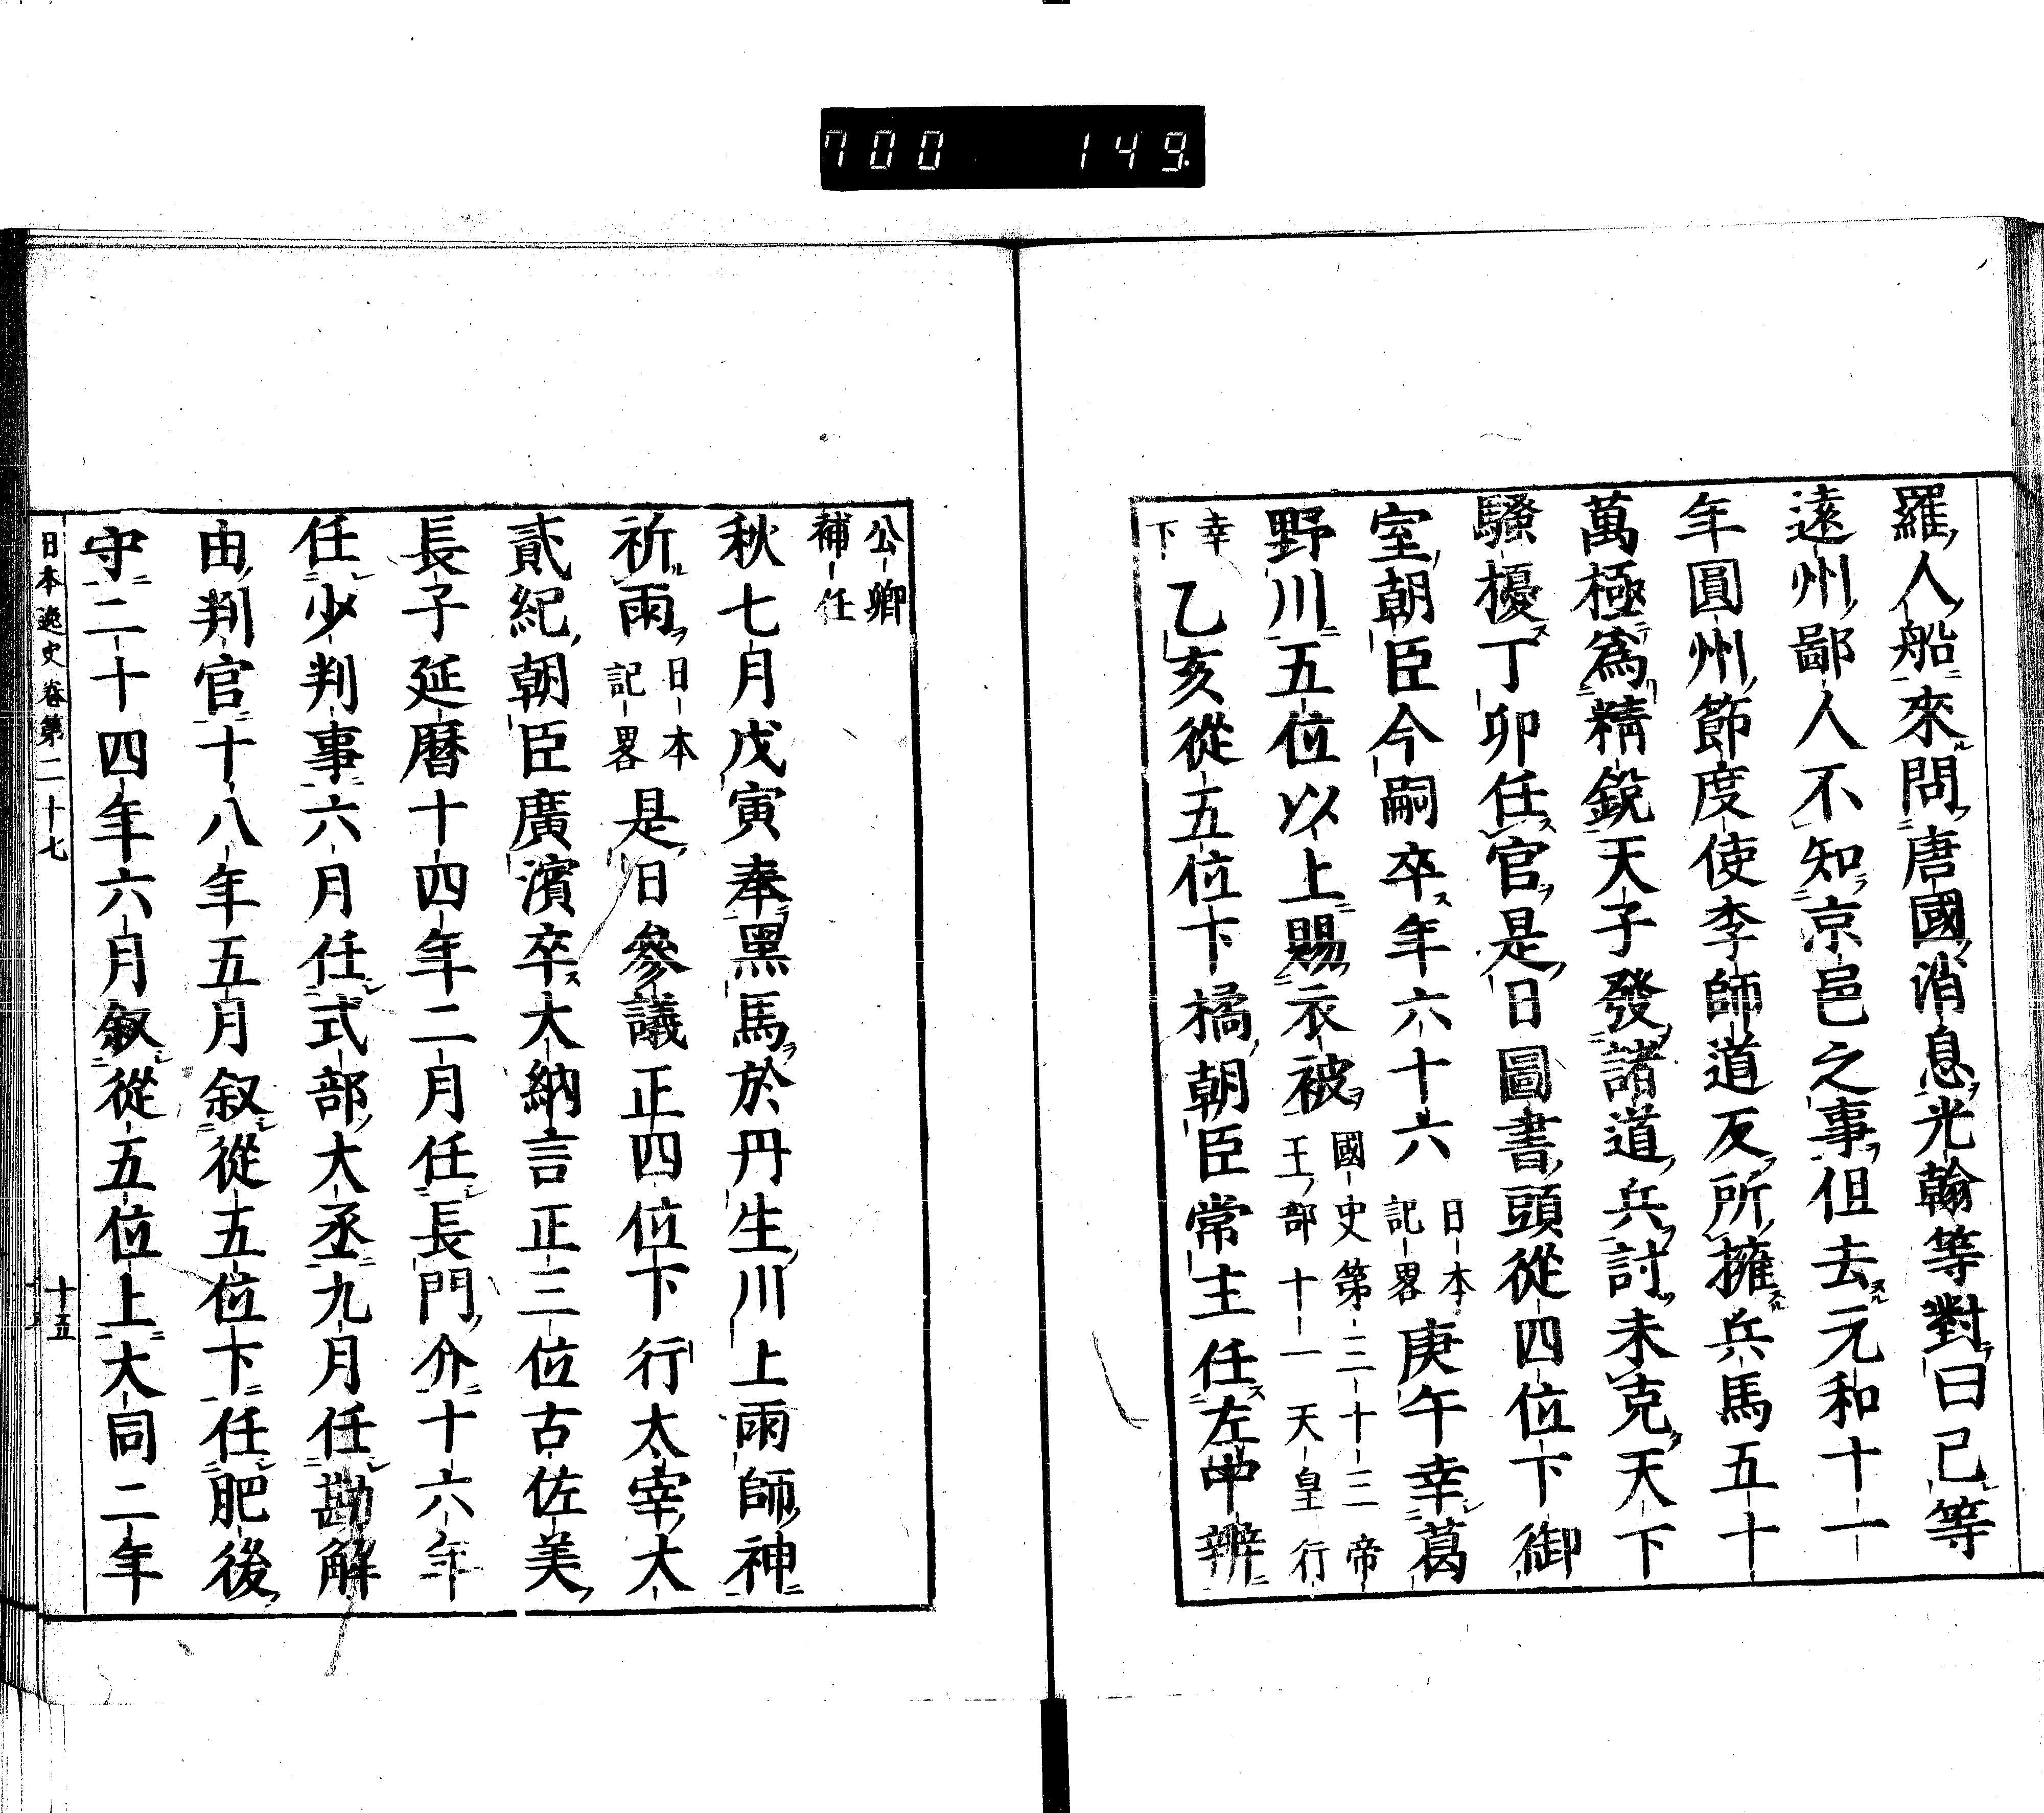 700 149
羅人船來問唐國消息光翰等對曰己等
遠州鄙人不知京邑之事但去元和十一
年圓州節度使李師道反所擁兵馬五十
萬極爲精鋭天子發諸道兵討未克天下
騷擾丁卯任官是日圖書頭從四位下御
室朝臣今嗣卒年六十六日本記畧庚午幸葛
野川五位以上賜衣被國史第三十三帝王部十一天皇行
幸下乙亥從五位下橘朝臣常主任左中辨
公卿補任
秋七月戊寅奉黑馬於丹生川上雨師神
祈雨日本記畧是日參議正四位下行太宰大
貳紀朝臣廣濱卒大納言正三位古佐美
長子延曆十四年二月任長門介十六年
任少判事六月任式部大丞九月任勘解
由判官十八年五月叙從五位下任肥後
守二十四年六月叙從五位上大同二年
日本逸史卷第二十七 十五